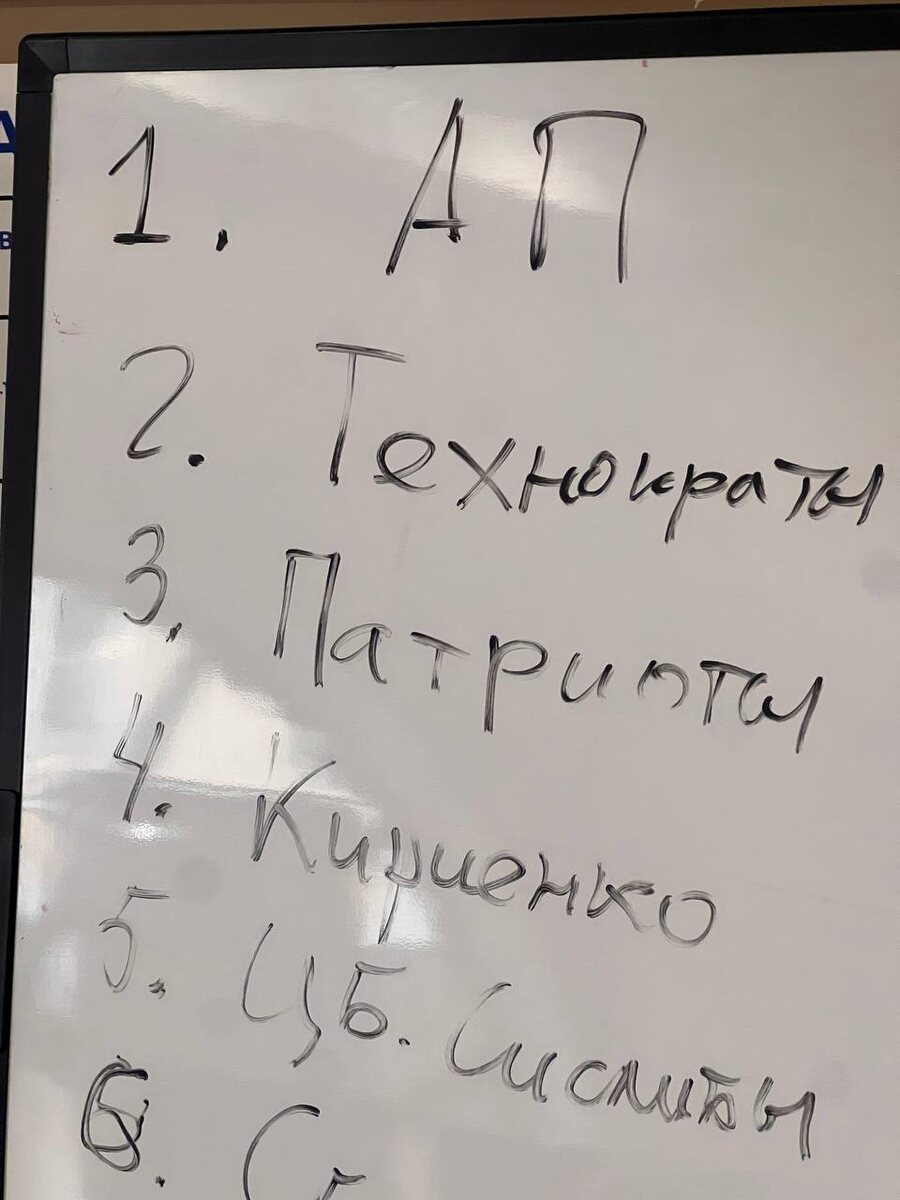 1. АП
2. Технократы
3. Патриоты
4. Кириенко
5. ЦБ. Сислибы
6. С